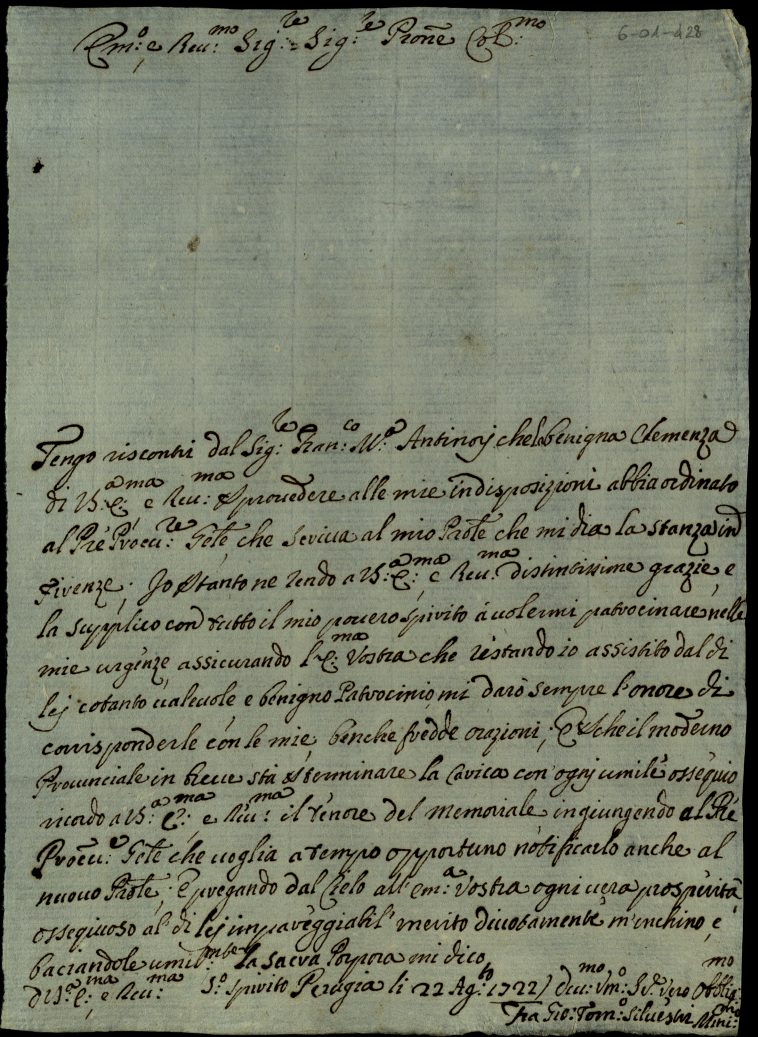 Em.o e Reu.mo Sig.re Sig.re Prone Col.mo
6-01-128
Tengo riscontri dal Sig.re Fran.co M.a Antinorj che la benigna Clemenza
di V.a E.ma e Reu.ma p provedere alle mie indisposizioni abbia ordinato
al Pre Procu.re Gele, che scriva al mio Prole che mi dia la stanza in
Firenze. Io p tanto ne rendo a V.a E.ma e Reu.ma distintissime grazie e
la supplico con tutto il mio povero spirito à volermi patrocinare nelle
mie urgenze, assicurando l'E.ma Vostra che restando io assistito dal di
lej cotanto ualeuole e benigno Patrocinio, mi darò sempre l'onore di
corrisponderle con le mie, benche fredde orazioni; E p che il moderno
Prouinciale in breue stà p terminare la Carica con ognj umile ossequio
ricordo a V.a E.ma e Reu.ma il tenore del memoriale ingiungendo al Pre
Procu.e Gele che uoglia a tempo opportuno notificarlo anche al
nuouo Prole; E pregando dal Cielo all'Em.a Vostra ogni uera prosperità
ossequioso al di lej impareggiabil' merito diuotamente m'inchino, e
baciandole umil.mte la sacra Porpora mi dico
di V.a E.ma e Reu.ma S.o Spirito Perugia li 22 Ag.to 1722 Deu.mo Um.o S.re Vero Obblig.mo
Fra Gio: Tom.o Siluestri Min: